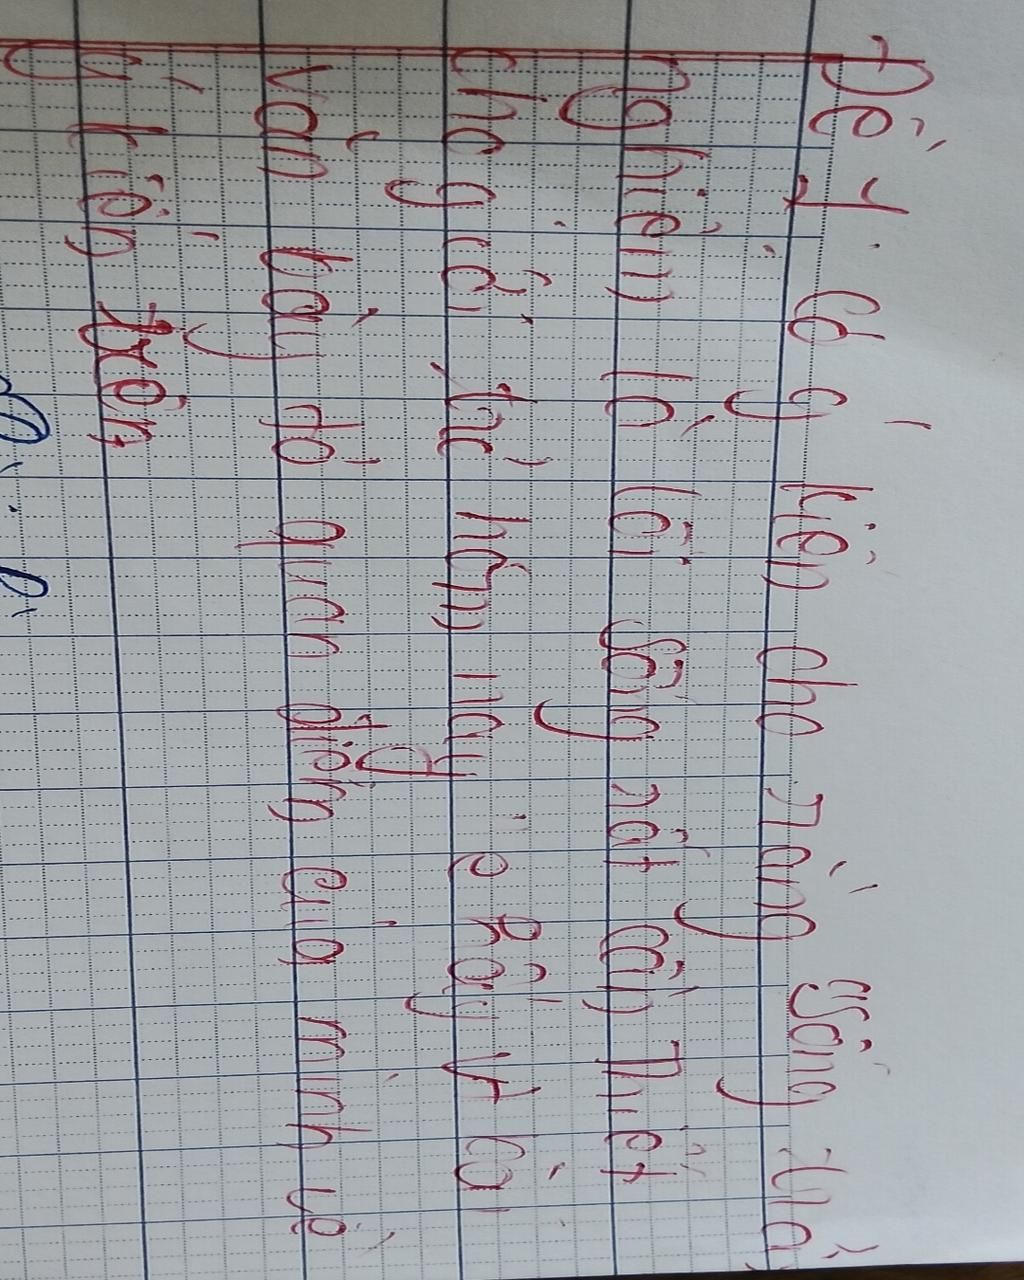 Đề 1: Có ý kiến cho rằng "Sống thử
nghiệm là lối sống rất cần thiết
cho giới trẻ hôm nay". e hãy vt bài
văn bày tỏ quan điểm của mình về
ý kiến trên